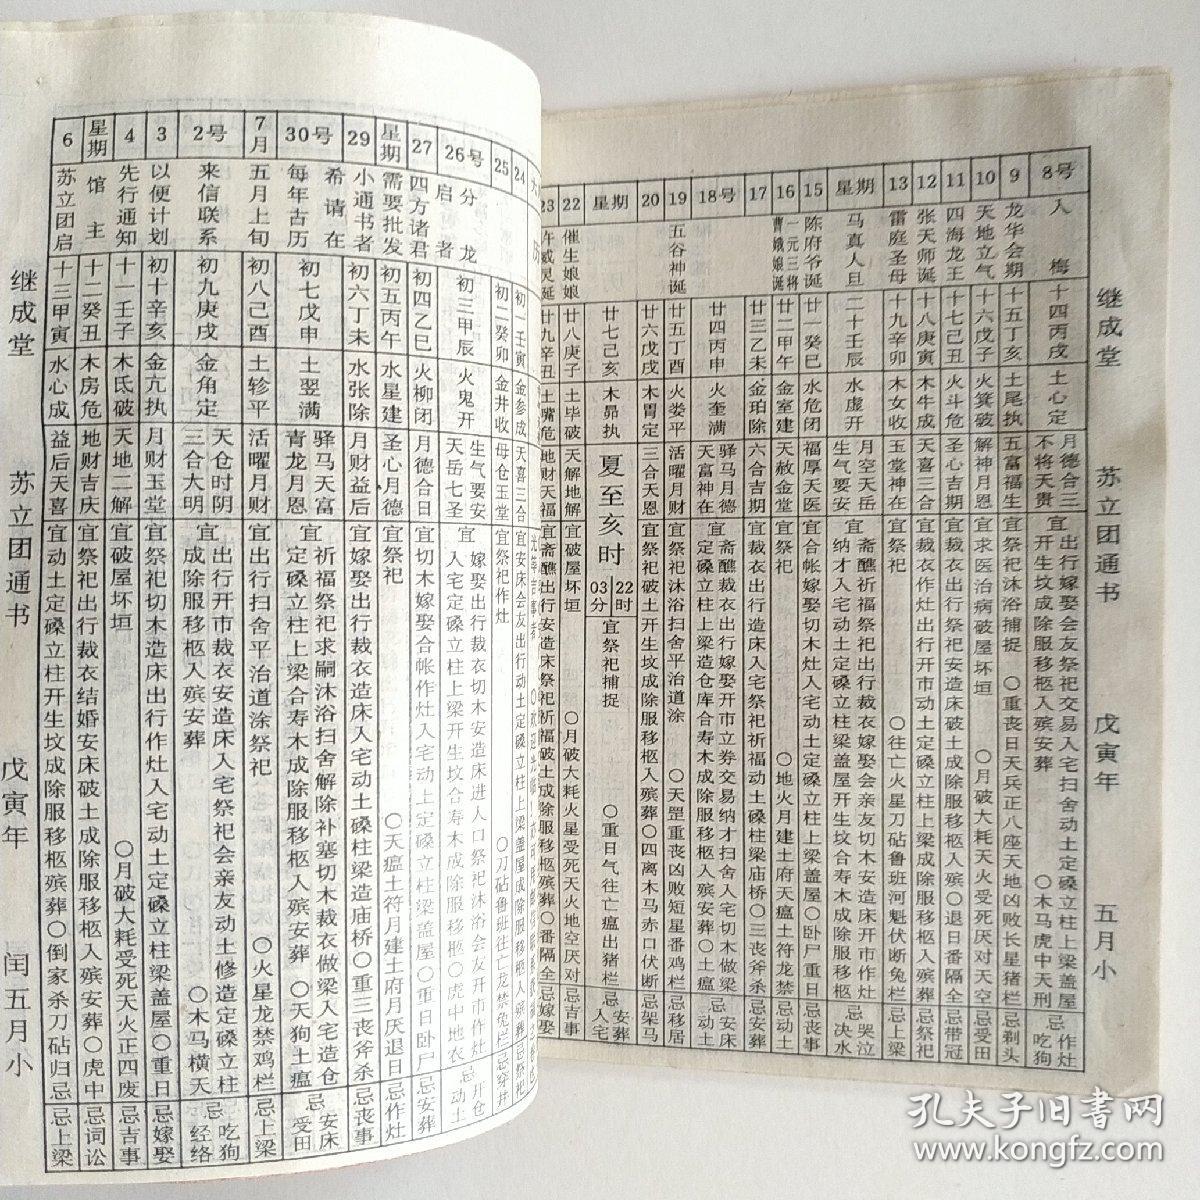 继成堂 苏立团通书 戊寅年 五月小
8号
入梅
十四丙戌
土心定
月德合三
不将天贵
宜出行嫁娶会友祭祀交易入宅扫舍动土定磉立柱上梁盖屋
开生坟成除服移柩入殡安葬 〇木马虎中天刑
忌作灶吃狗
9
龙华会期
十五丁亥
土尾执
五富福生
宜祭祀沐浴捕捉 〇重丧日天兵正八座天地凶败长星猪栏
忌剃头
10
天地立气
十六戊子
火箕破
解神月恩
宜求医治病破屋坏垣 〇月破大耗天火受死厌对天空
忌受田
11
四海龙王
十七己丑
火斗危
圣心吉期
宜裁衣出行祭祀安造床破土成除服移柩入殡〇退日番隔全
忌带冠
12
张天师诞
十八庚寅
木牛成
天喜三合
宜裁衣作灶出行开市动土定磉立柱上梁成除服移柩入殡葬
忌祭祀
13
雷庭圣母
十九辛卯
木女收
玉堂神在
宜祭祀 〇往亡火星刀砧鲁班河魁伏断兔栏
忌上梁
星期
马真人旦
二十壬辰
水虚开
月空天岳
生气要安
宜斋醮祈福祭祀出行裁衣嫁娶会亲友切木安造床开市作灶
纳才入宅动土定磉立柱梁盖屋开生坟合寿木成除服移柩
忌哭泣决水
15
陈府爷诞
廿一癸巳
水危闭
福厚天医
宜合帐嫁娶切木灶入宅动土定磉立柱上梁盖屋〇卧尸重日
忌丧事
16
一元三将
曹娥娘诞
廿二甲午
金室建
天赦金堂
宜祭祀 〇地火月建土府天瘟土符龙禁
忌动土
17
廿三乙未
金珀除
六合吉期
宜裁衣出行造床入宅祭祀祈福动土磉柱梁庙桥〇三丧斧杀
忌安葬
18号
廿四丙申
火奎满
驿马月德
天富神在
宜斋醮裁衣出行嫁娶开市立券交易纳才扫舍入宅切木做梁
定磉立柱上梁造仓库合寿木成除服移柩入殡安葬〇土瘟
忌安床动土
19
五谷神诞
廿五丁酉
火娄平
活曜月财
宜祭祀沐浴扫舍平治道涂 〇天罡重丧凶败短星番鸡栏
忌移居
20
廿六戊戌
木胃定
三合天恩
宜祭祀破土开生坟成除服移柩入殡葬〇四离木马赤口伏断
忌架马
星期
廿七己亥
木昴执
夏至亥时
22时
03分
宜祭祀捕捉 〇重日气往亡瘟出猪栏
忌安葬入宅
22
催生娘娘
廿八庚子
土毕破
天解地解
宜破屋坏垣 〇月破大耗火星受死天火地空厌对
忌吉事
23
许威灵诞
廿九辛丑
土嘴危
地财天福
宜斋醮出行安造床祭祀祈福破土成除服移柩殡葬〇番隔全
忌嫁娶
24
初一壬寅
金参成
天喜三合
宜安床会友出行动土定磉立柱上梁盖屋成除服移柩入殡葬
忌祭祀
25
初二癸卯
金井收
母仓玉堂
宜祭祀作灶 〇刀砧鲁班往亡龙禁兔栏
忌穿井
26号
分龙
启者
初三甲辰
火鬼开
生气要安
天岳七圣
宜嫁娶出行裁衣切木安造床进人口祭祀沐浴会友开市作灶
入宅定磉立柱上梁开生坟合寿木成除服移柩〇虎中地衣
忌开仓动土
27
四方诸君
初四乙巳
火柳闭
月德合日
宜切木嫁娶合帐作灶入宅动土定磉立柱梁盖屋〇重日卧尸
忌安葬
星期
需要批发
初五丙午
水星建
圣心月德
宜祭祀 〇天瘟土符月建土府月厌退日
忌作灶
29
小通书者
初六丁未
水张除
月财益后
宜嫁娶出行裁衣造床入宅动土磉柱梁造庙桥〇重三丧斧杀
忌丧事
30号
希请在
每年古历
初七戊申
土翌满
驿马天富
青龙月恩
宜祈福祭祀求嗣沐浴扫舍解除补塞切木裁衣做梁入宅造仓
定磉立柱上梁合寿木成除服移柩入殡安葬 〇天狗土瘟
忌安床受田
7月
五月上旬
初八己酉
土轸平
活曜月财
宜出行扫舍平治道涂祭祀 〇火星龙禁鸡栏
忌上梁
2号
来信联系
初九庚戌
金角定
天仓时阴
三合大明
宜出行开市裁衣安造床入宅祭祀会亲友动土修造定磉立柱
成除服移柩入殡安葬 〇木马横天
忌吃狗经络
3
以便计划
初十辛亥
金亢执
月财玉堂
宜祭祀切木造床出行作灶入宅动土定磉立柱梁盖屋〇重日
忌嫁娶
4
先行通知
十一壬子
木氐破
天地二解
宜破屋坏垣 〇月破大耗受死天火正四废
忌吉事
星期
馆主
十二癸丑
木房危
地财吉庆
宜祭祀出行裁衣结婚安床破土成除服移柩入殡安葬〇虎中
忌词讼
6
苏立团启
十三甲寅
水心成
益后天喜
宜动土定磉立柱开生坟成除服移柩殡葬〇倒家杀刀砧归忌
忌上梁
继成堂 苏立团通书 戊寅年 闰五月小
孔夫子旧书网
www.kongfz.com